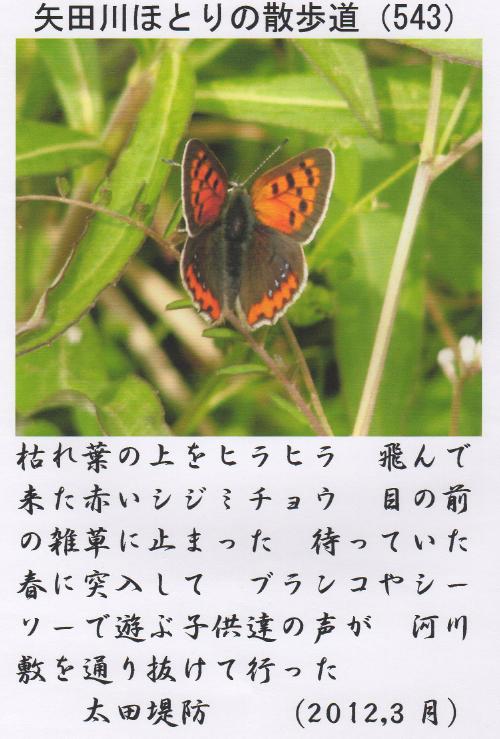 矢田川ほとりの散歩道（543）
枯れ葉の上をヒラヒラ　飛んで
来た赤いシジミチョウ　目の前
の雑草に止まった　待っていた
春に突入して　ブランコやシー
ソーで遊ぶ子供達の声が　河川
敷を通り抜けて行った
太田堤防　　（2012,3 月）